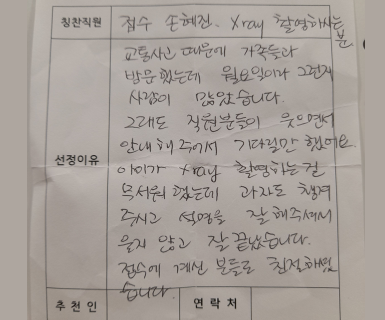 칭찬직원 접수 손혜진. Xray 촬영하시는 분
교통사고 때문에 가족들과
방문했는데 월요일이라 그런지
사람이 많았습니다.
그래도 직원분들이 웃으면서
안내해 주어서 기다릴만 했어요
선정이유 아이가 xray 촬영하는걸
무서워 했는데 과자도 챙겨
주시고 설명을 잘해주셔서
울지 않고 잘 끝냈습니다.
접수에 계신 분들도 친절하셨
습니다.
추천인 연락처